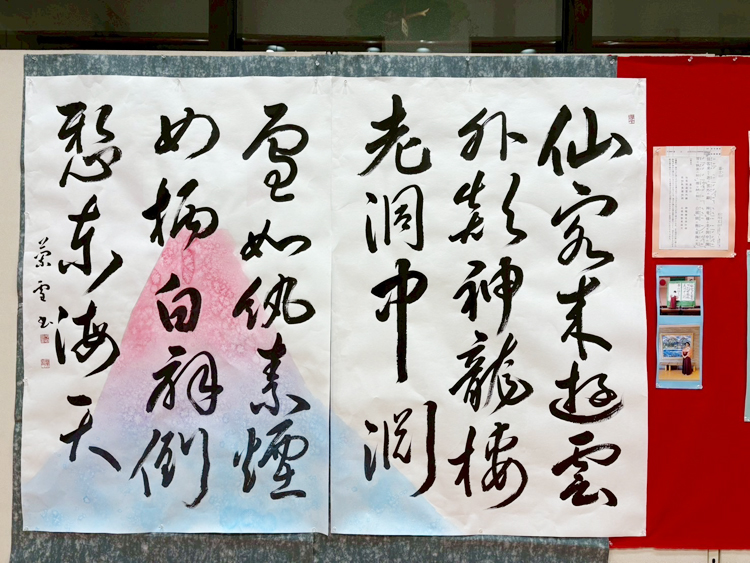 仙客来遊雲
外巓神龍棲
老洞中淵
雪如紈素煙
如柄白扇倒
懸東海天